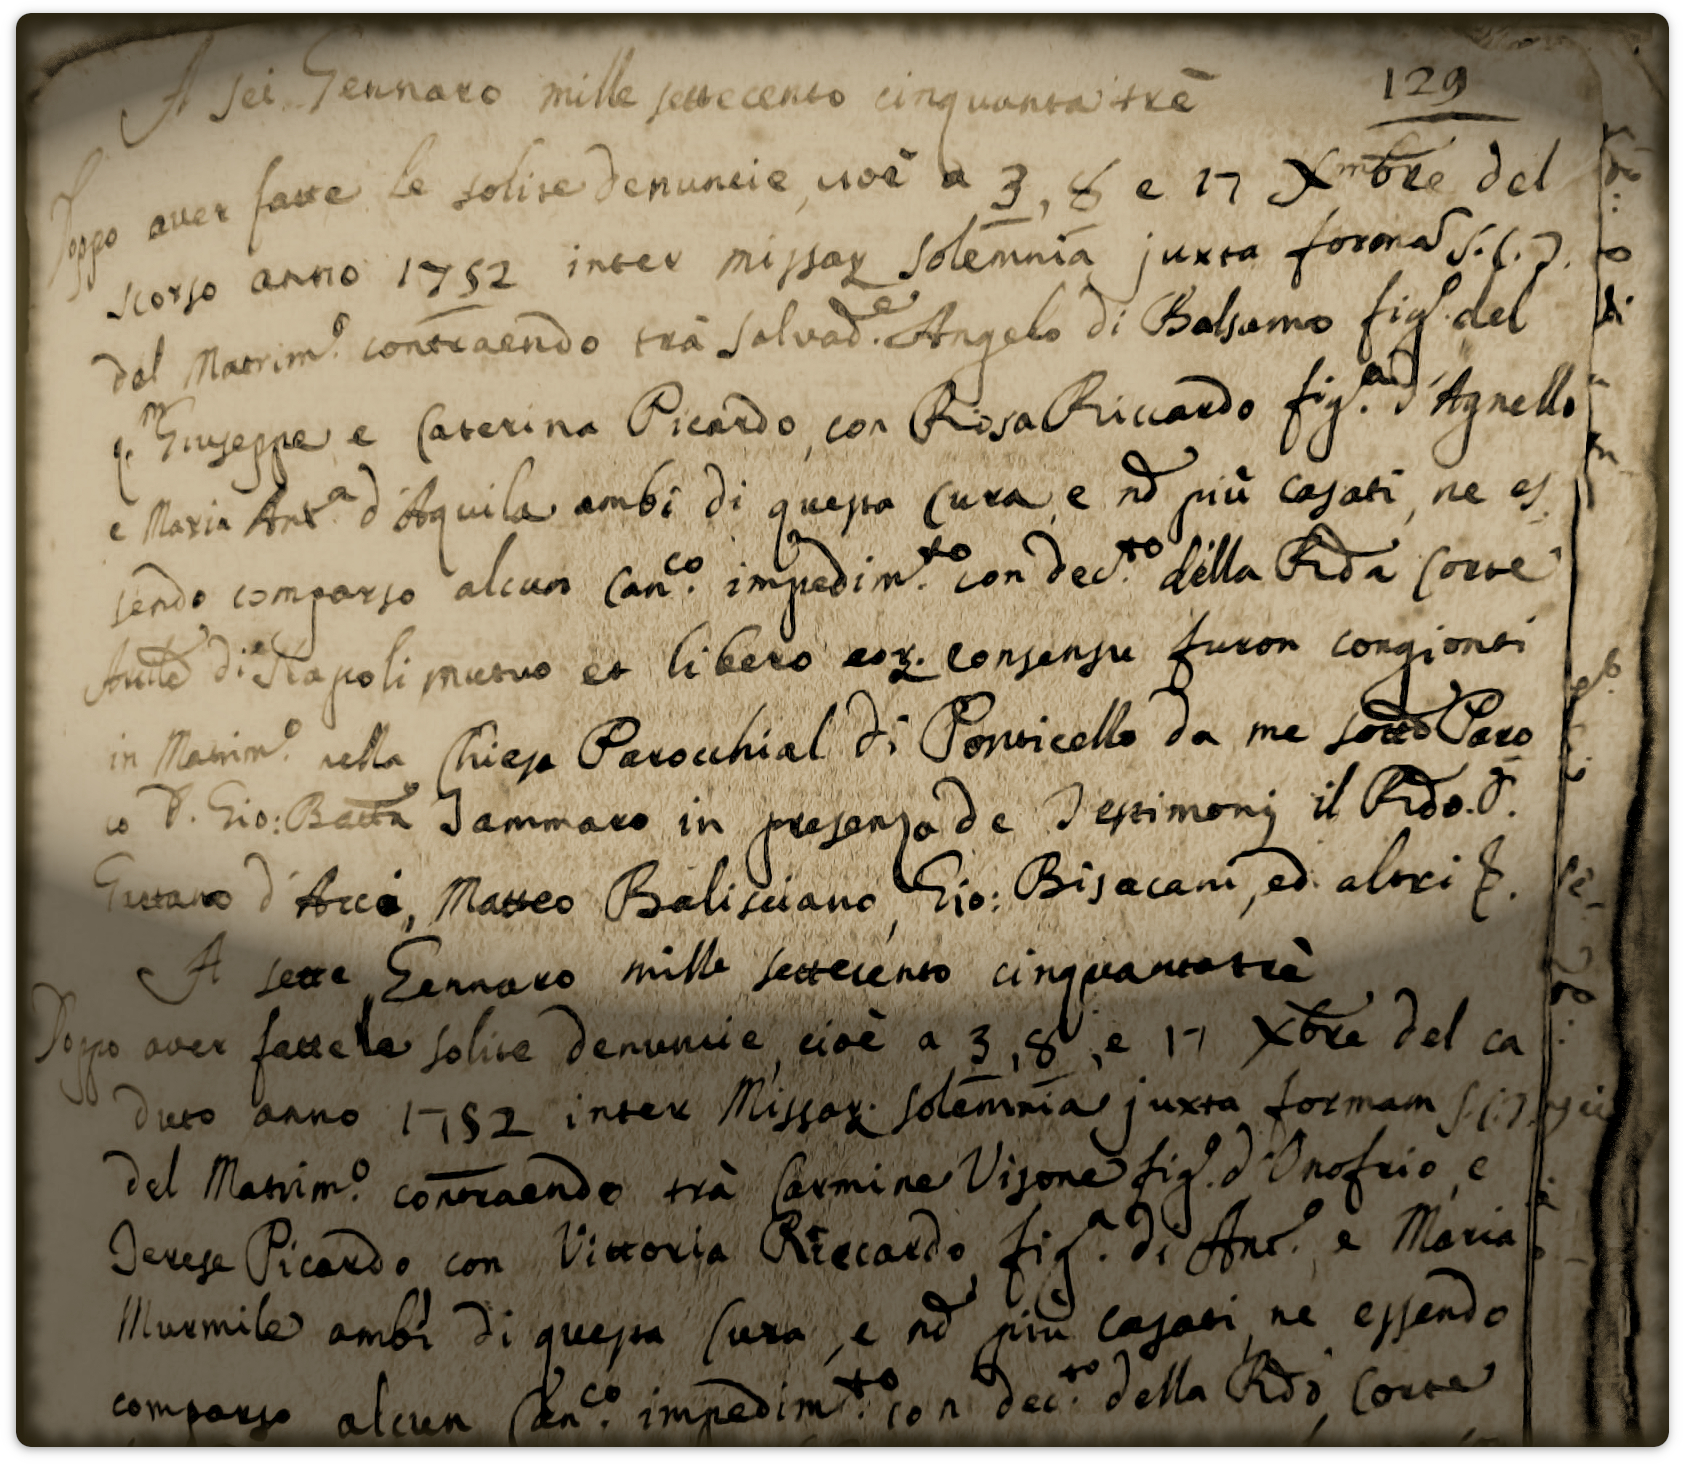 A sei Gennaro mille settecento cinquanta trè
129
Doppo aver fatte le solite denuncie, cioè a 3, 8 e 17 Xmbre del
scorso anno 1752 inter missar solemnia juxta forma S.C.T.
del Matrim.o contraendo trà Salvad.e Angelo di Balsamo fig.o del
q.m Giuseppe e Caterina Picardo, con Rosa Riccardo fig.a d'Agnello
e Maria Ant.a d'Aquila ambi di questa Cura, e nō più casati, ne es
sendo comparso alcun Can.co impedim.to con dec.to della Rda Corte
di Napoli mutuo et libero eor. consensu furon congionti
in Matrim.o nella Chiesa Parocchial di Ponticello da me sotto Paro
co D. Gio: Batta Jammaro in presenza de Testimonij il Rdo. D.
Gaetano d'Acci, Matteo Balisciano, Gio: Bisacani, ed altri
A sette Gennaro mille settecento cinquantatrè
Doppo aver fatte le solite denuncie, cioè a 3, 8, e 17 Xbre del ca
duto anno 1752 inter Missar. solemnia juxta formam S.C.T.
del Matrim.o contraendo trà Carmine Visone fig.o d'Onofrio, e
Terese Picardo, con Vittoria Riccardo fig.a di Ant.o, e Maria
Murmile ambi di questa Cura, e nō più casati, ne essendo
comparso alcun Can.co impedim.to con dec.to della Rda Corte